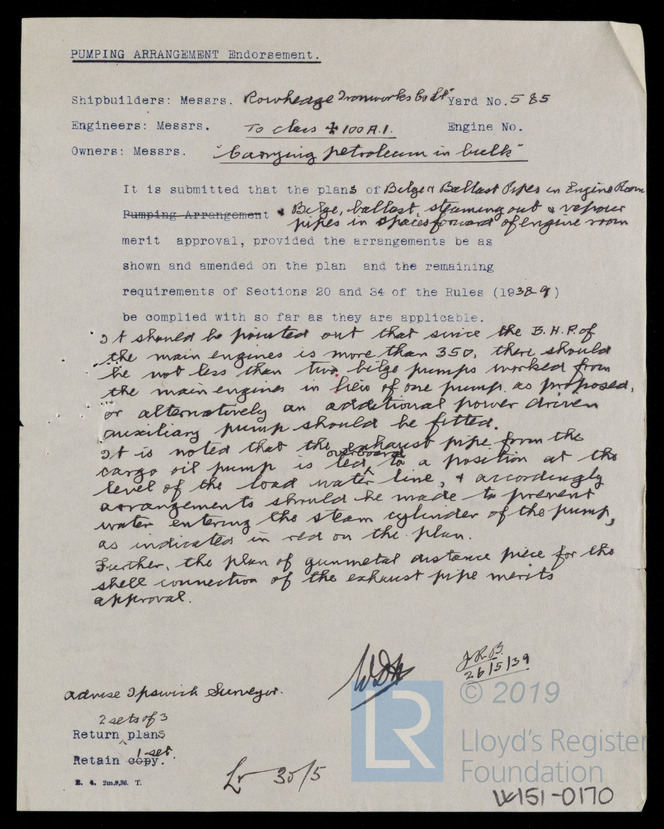 PUMPING ARRANGEMENT Endorsement.
Shipbuilders: Messrs. Rowhedge Ironworks Co Ld Yard No. 585
Engineers: Messrs. To class ✠ 100 A.1. Engine No.
Owners: Messrs. "Carrying petroleum in bulk"
It is submitted that the plans of Bilge & Ballast Pipes in Engine Room
Pumping Arrangement & Bilge, ballast, steaming out & vapour
pipes in spaces forward of engine room
merit approval, provided the arrangements be as
shown and amended on the plan and the remaining
requirements of Sections 20 and 34 of the Rules (1938-9)
be complied with so far as they are applicable.
It should be pointed out that since the B.H.P. of
the main engines is more than 350, there should
be not less than two bilge pumps worked from
the main engines in lieu of one pump as proposed,
or alternatively an additional power driven
auxiliary pump should be fitted.
It is noted that the exhaust pipe from the
cargo oil pump is led overboard to a position at the
level of the load water line, & accordingly
arrangements should be made to prevent
water entering the steam cylinder of the pump,
as indicated in red on the plan.
Further, the plan of gunmetal distance piece for the
shell connection of the exhaust pipe merits
approval.
J.R.B.
26/5/39
Advise Ipswich Surveyor.
2 sets of 3
Return plans
1 set.
Retain copy.
E. 4. 2m,9,36. T.
Lr 30/5
© 2019
LR
Lloyd's Register
Foundation
W151-0170